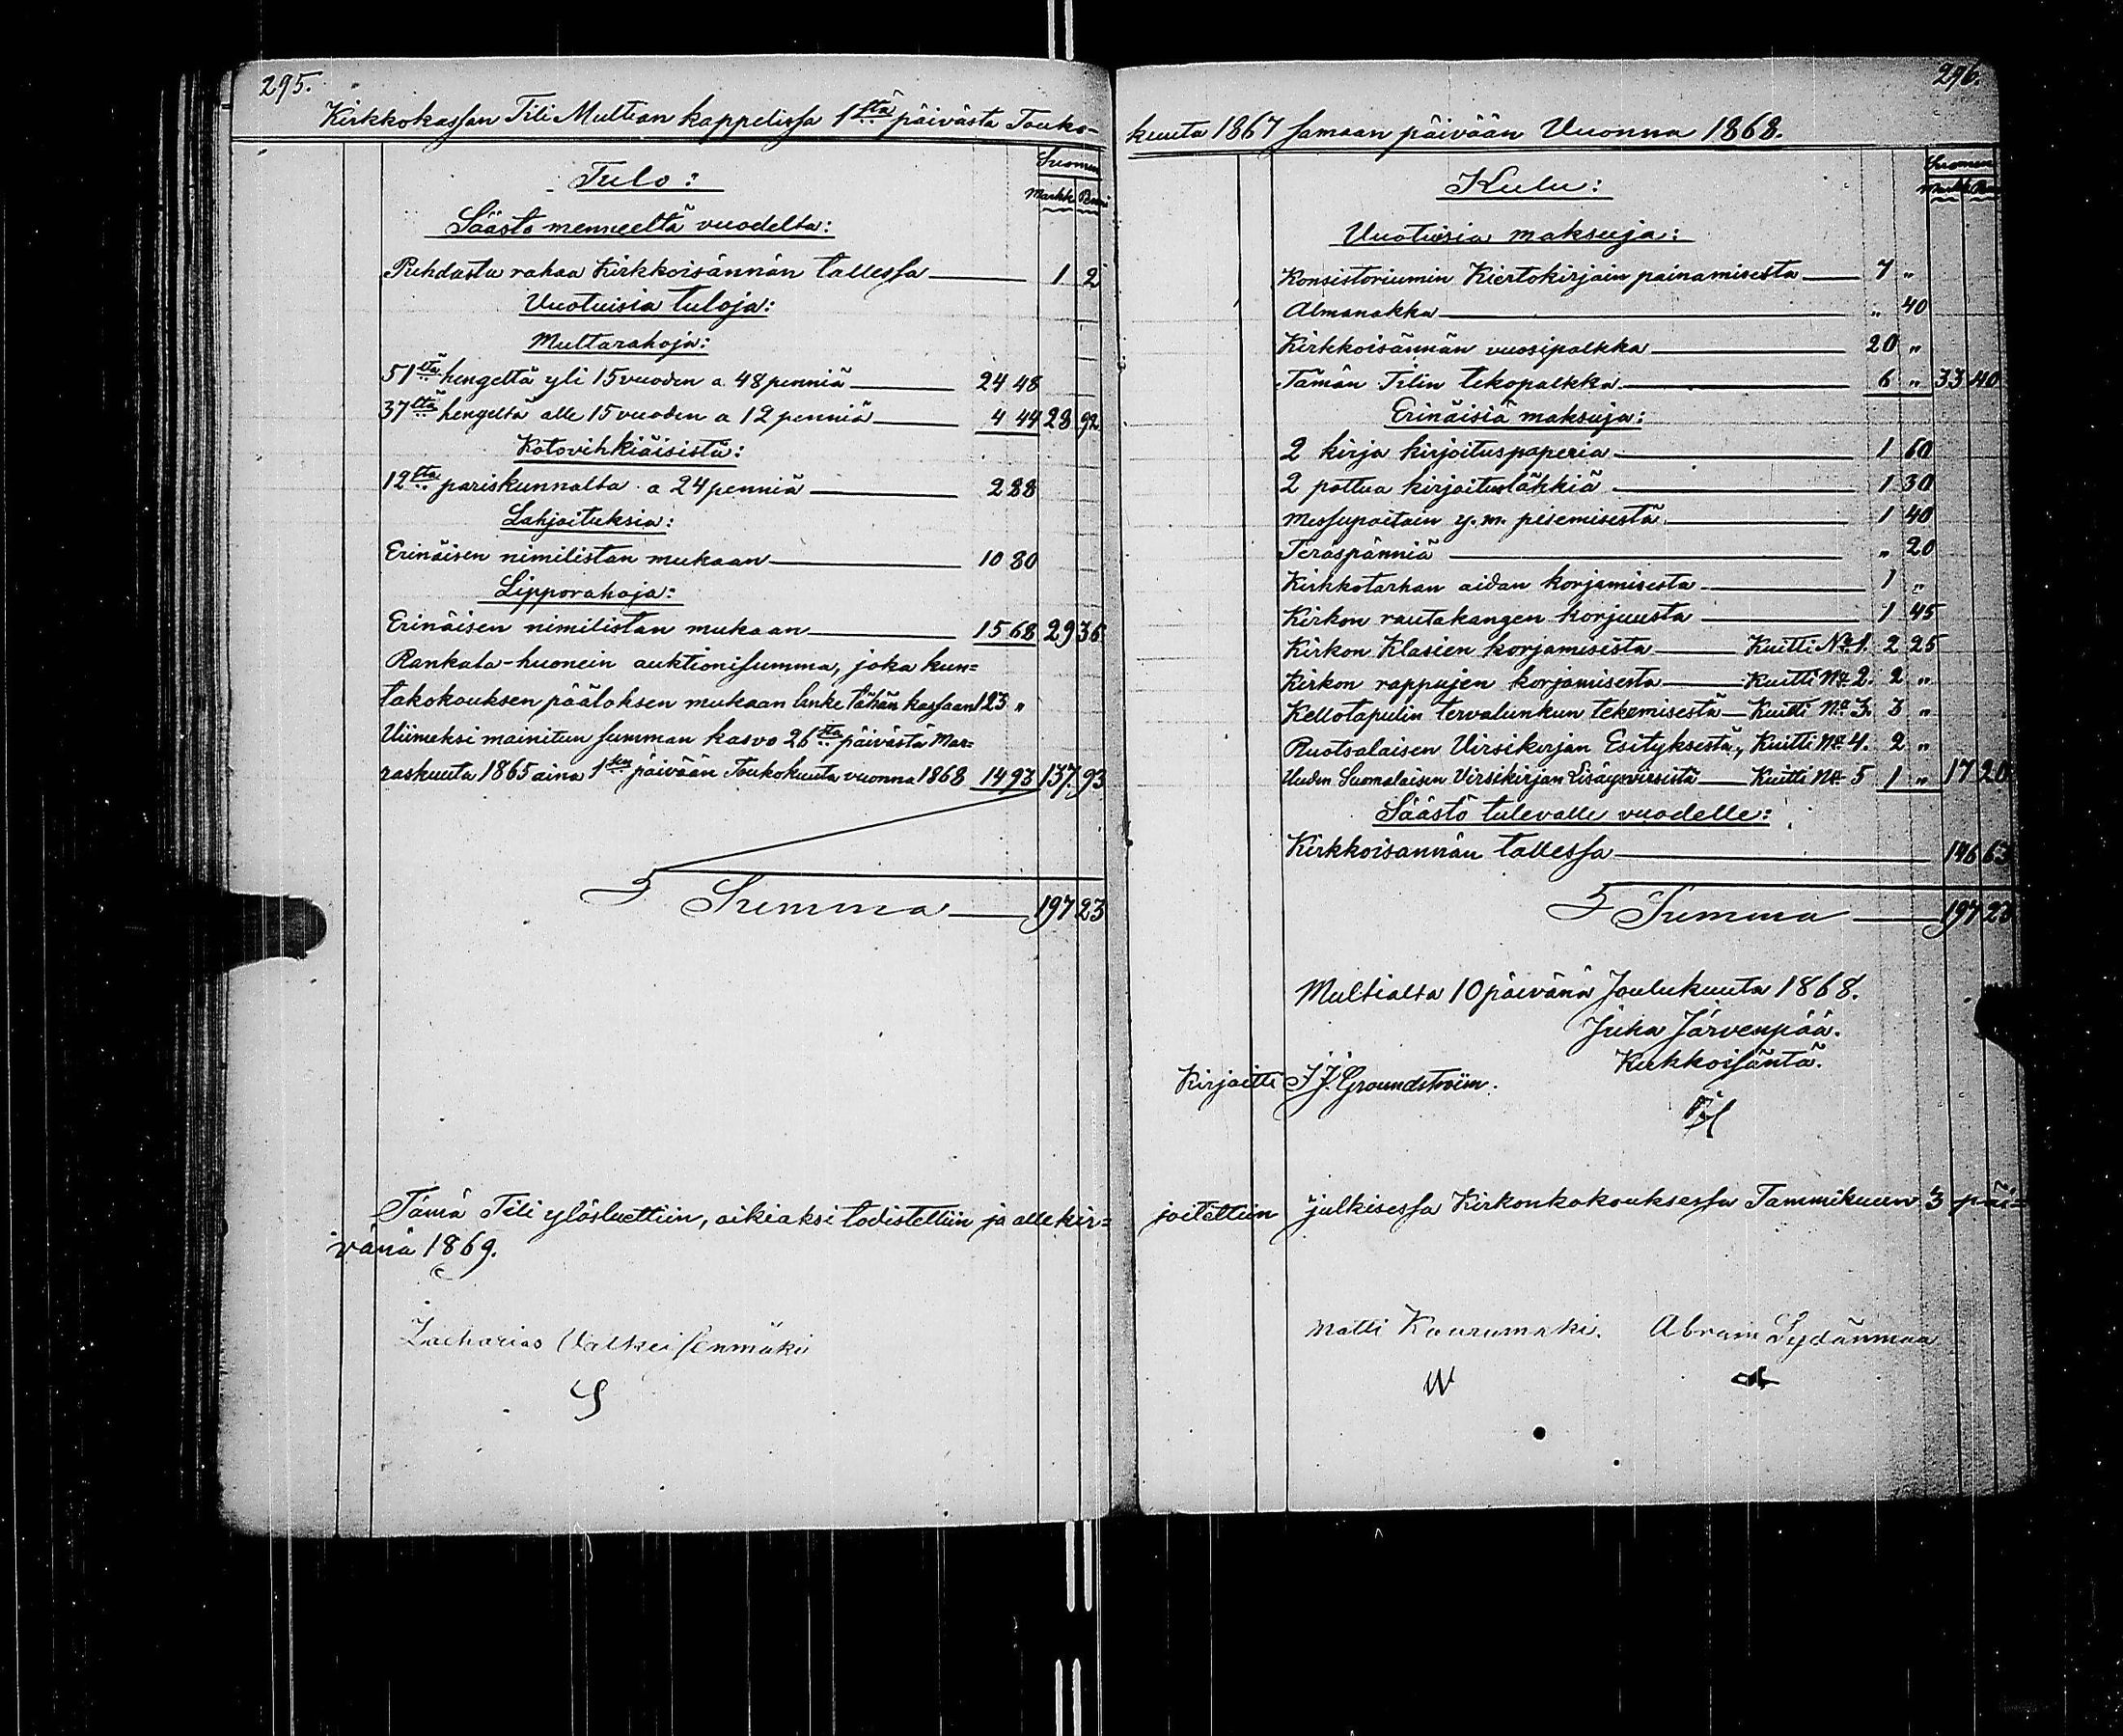 295.
Kirkkokassan Tili Multian kappelissa 1stä päivästä Touko-
Suomen
Tulo:
Markk. Penni
Säästö menneeltä vuodelta:
Puhdasta rahaa Kirkkoisännän tallessa 1 2
Vuotuisia tuloja:
Multarahoja:
51ltä hengeltä yli 15 vuoden a 48 penniä 24 48
37ltä hengeltä alle 15 vuoden a 12 penniä 4 44 28 92
Kotovihkiäisistä:
12lta pariskunnalta a 24 penniä 2 88
Lahjoituksia:
Erinäisen nimilistan mukaan 10 80
Lipporahoja:
Erinäisen nimilistan mukaan 15 68 29 36
Rankala-huonein auktionisumma, joka kun-
takokouksen päätöksen mukaan lanke tähän kassaan 123 "
Viimeksi mainitun summan kasvo 26sta päivästä Mar-
raskuuta 1865 aina 1sen päivään Toukokuuta vuonna 1868 14 93 137. 93
Summa 197 23
Tämä Tili ylösluettiin, oikiaksi todistettiin ja allekir-
vänä 1869.
Zacharias Valkeisenmäki
296.
kuuta 1867 samaan päivään Vuonna 1868.
Suomen
Kulu:
Markk. Penni
Vuotuisia maksuja:
Konsistoriumin Kiertokirjain painamisesta 7 "
Almanakka " 40
Kirkkoisännän vuosipalkka 20 "
Tämän Tilin tekopalkka 6 " 33 40
Erinäisiä maksuja:
2 kirja kirjoituspaperia 1 60
2 pottua kirjoitusläkkiä 1 30
Messupaitain y.m. pesemisestä 1 40
Teräspänniä " 20
Kirkkotarhan aidan korjamisesta 1 "
Kirkon rautakangen korjuusta 1 45
Kirkon Klasien korjamisesta Kuitti No 1. 2 25
Kirkon rappujen korjamisesta Kuitti No 2. 2 "
Kellotapulin tervalunkun tekemisestä Kuitti No 3. 3 "
Ruotsalaisen Virsikirjan Esityksestä, Kuitti No 4. 2 "
Uuden Suomalaisen Virsikirjan Lisäysvirsistä Kuitti No 5 1 " 17 20
Säästö tulevalle vuodelle:
Kirkkoisännän tallessa 146 63
Summa 197 23
Multialta 10 päivänä Joulukuuta 1868.
Juha Järvenpää.
Kirkkoisäntä.
Kirjoitti J J. Groundstroëm.
joitettiin julkisessa Kirkonkokouksessa Tammikuun 3 päi-
Matti Kaurumäki. Abram Sydänmaa